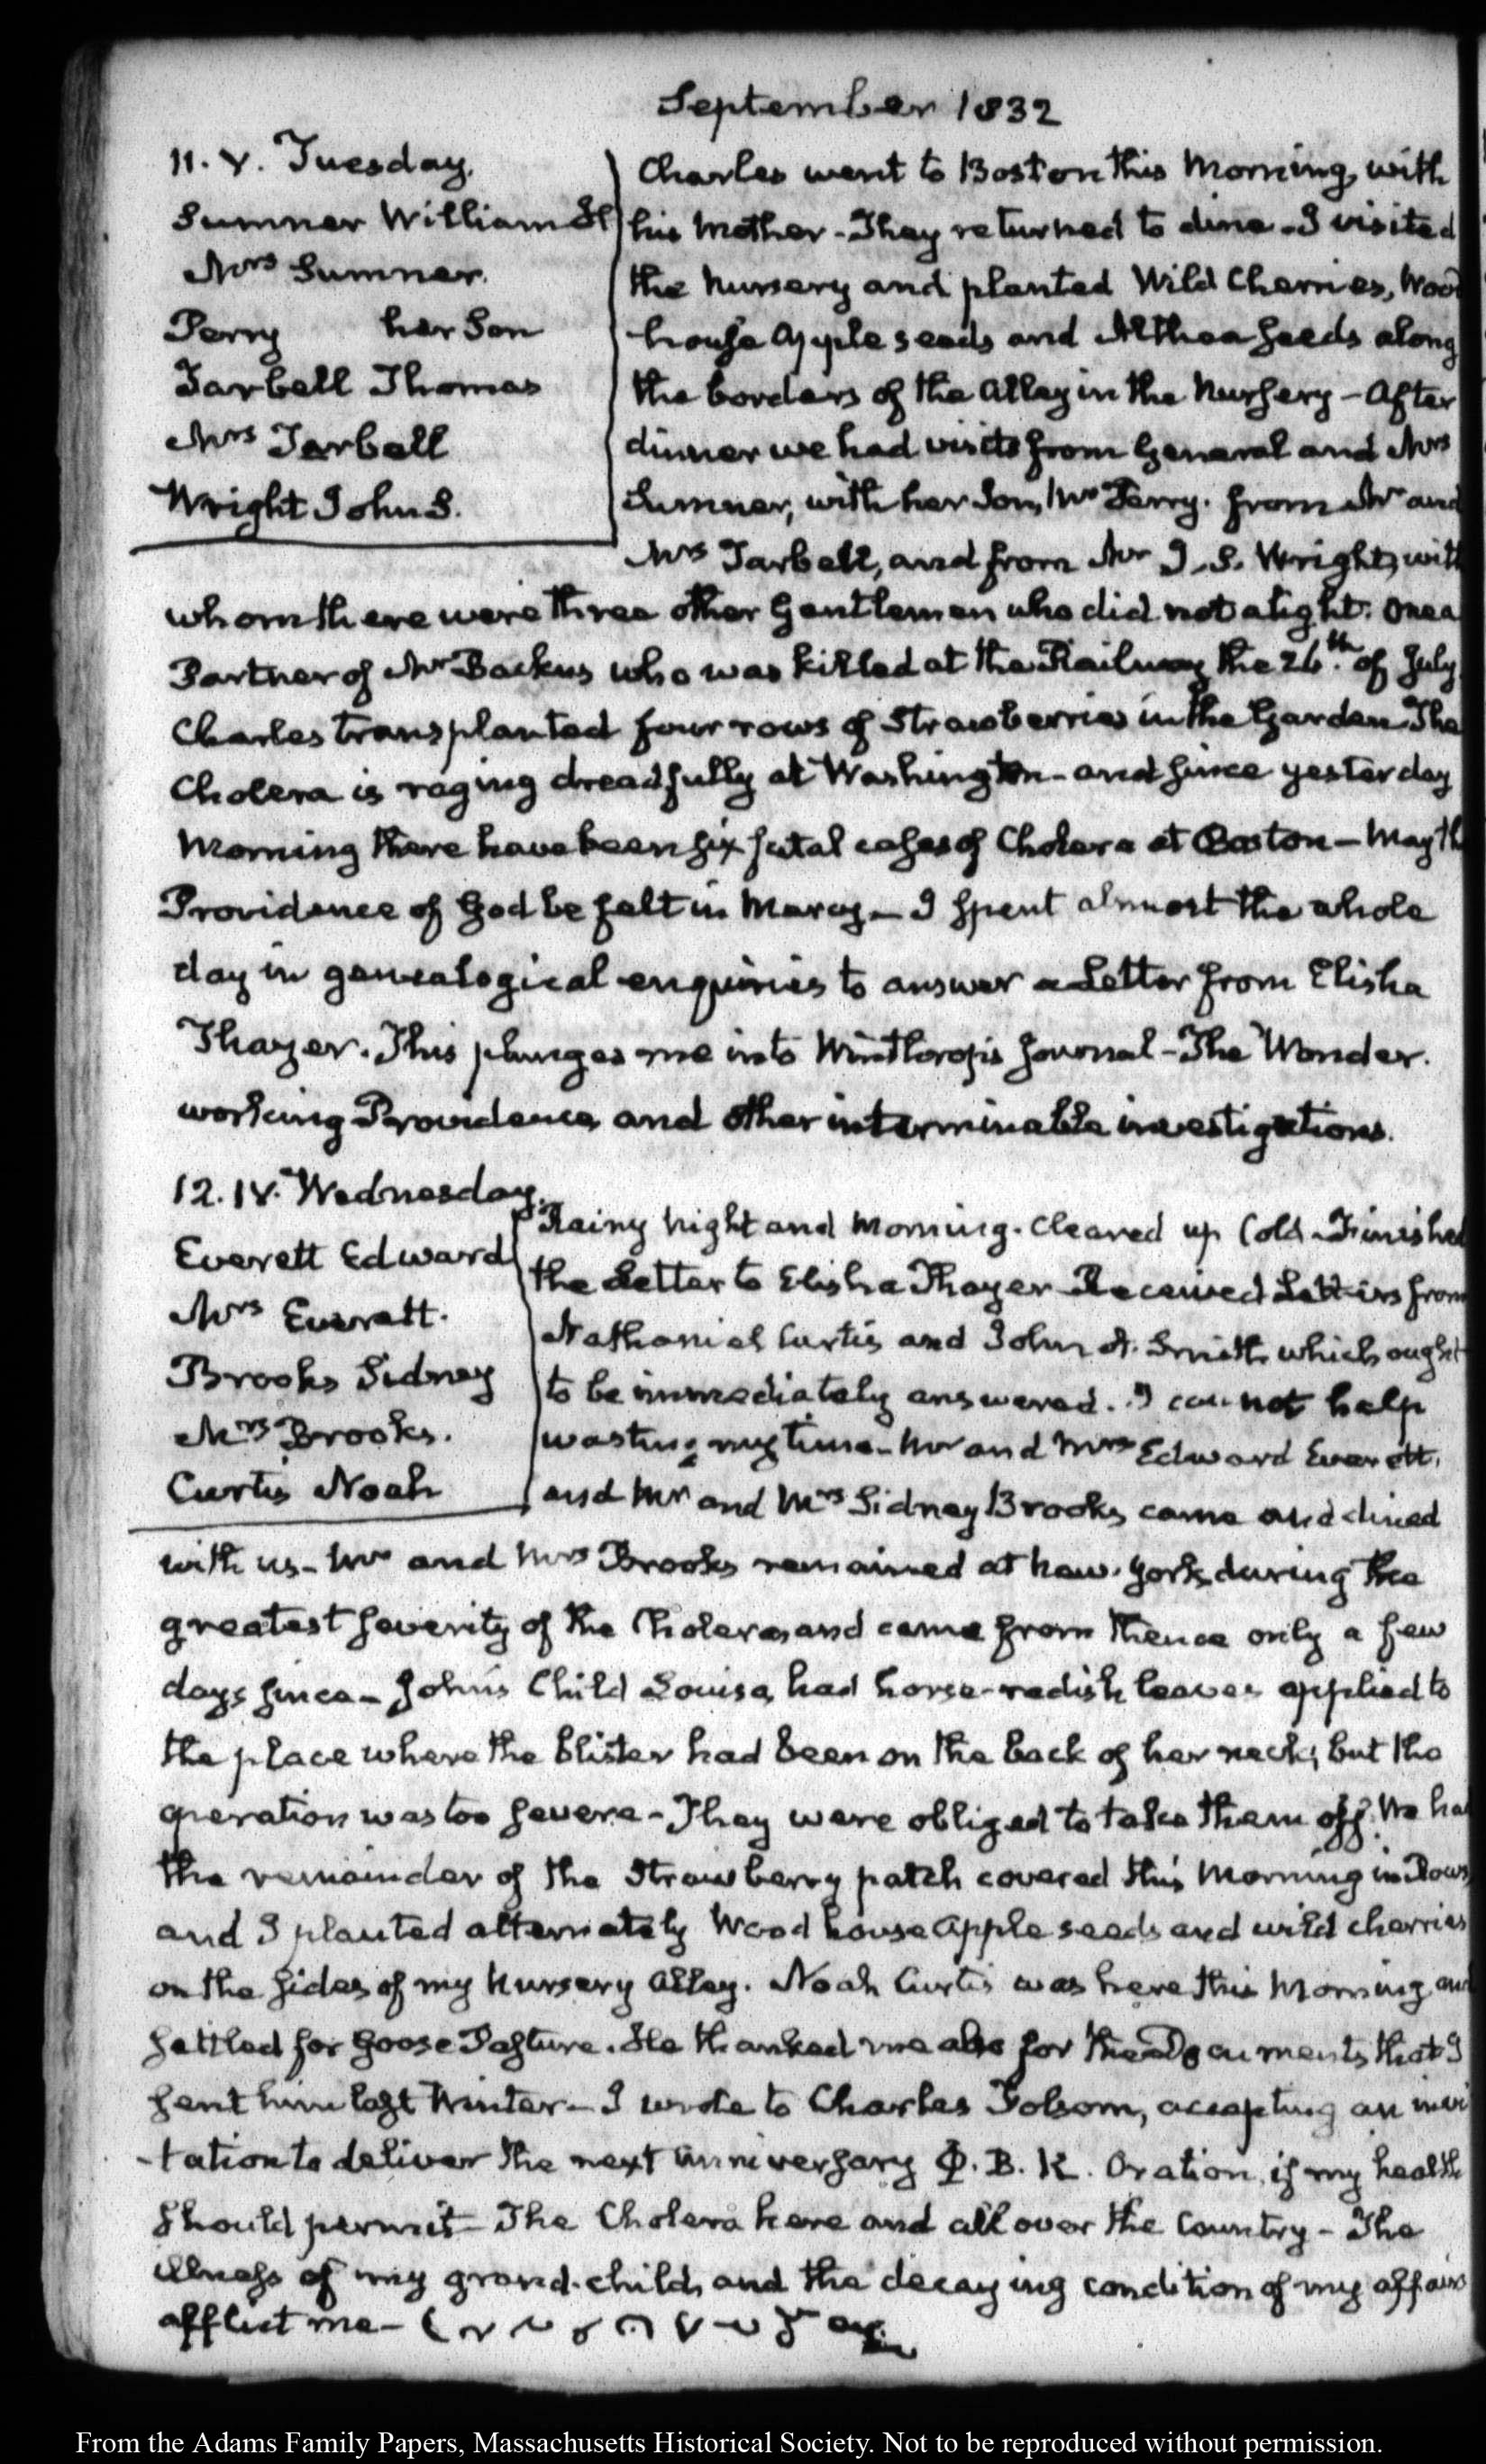 September 1832
11. V. Tuesday.
Sumner William H
Mrs Sumner.
Perry her Son
Tarbell Thomas
Mrs Tarbell
Wright John S.
Charles went to Boston this Morning, with
his Mother - They returned to dine - I visited
the Nursery and planted Wild Cherries, Wood
house Apple seeds and Althea seeds along
the borders of the Alley in the Nursery - After
dinner we had visits from General and Mrs
Sumner, with her Son, Mr Perry. from Mr and
Mrs Tarbell, and from Mr J. S. Wright, with
whom there were three other Gentlemen who did not alight. One a
Partner of Mr Backus who was killed at the Railway the 26th. of July
Charles transplanted four rows of Strawberries in the Garden. The
Cholera is raging dreadfully at Washington - and since yesterday
Morning there have been six fatal cases of Cholera at Boston - May th
Providence of God be felt in Mercy - I spent almost the whole
day in genealogical enquiries to answer a Letter from Elisha
Thayer. This plunges me into Winthrop's Journal - The Wonder.
working Providence, and other interminable investigations.
12. IV. Wednesday.
Everett Edward
Mrs Everett.
Brooks Sidney
Mrs Brooks.
Curtis Noah
Rainy Night and Morning. Cleared up Cold - Finished
the Letter to Elisha Thayer - Received Letters from
Nathaniel Curtis and John A. Smith which ought
to be immediately answered. I cannot help
wasting my time - Mr and Mrs Edward Everett,
and Mr and Mrs Sidney Brooks came and dined
with us - Mr and Mrs Brooks remained at New-York during the
greatest severity of the Cholera, and came from thence only a few
days since - John's Child Louisa, had horse-radish leaves applied to
the place where the blister had been on the back of her neck, but the
operation was too severe - They were obliged to take them off. We had
the remainder of the Strawberry patch covered this Morning in Rows,
and I planted alternately Wood house Apple seeds and wild cherries
on the sides of my Nursery Alley. Noah Curtis was here this Morning, and
settled for Goose Pasture. He thanked me also for the Documents that I
sent him last Winter - I wrote to Charles Folsom, accepting an invi
-tation to deliver the next Anniversary Φ. B. K. Oration, if my health
should permit - The Cholera here and all over the Country - The
illness of my grand-child, and the decaying condition of my affairs
afflict me -
From the Adams Family Papers, Massachusetts Historical Society. Not to be reproduced without permission.